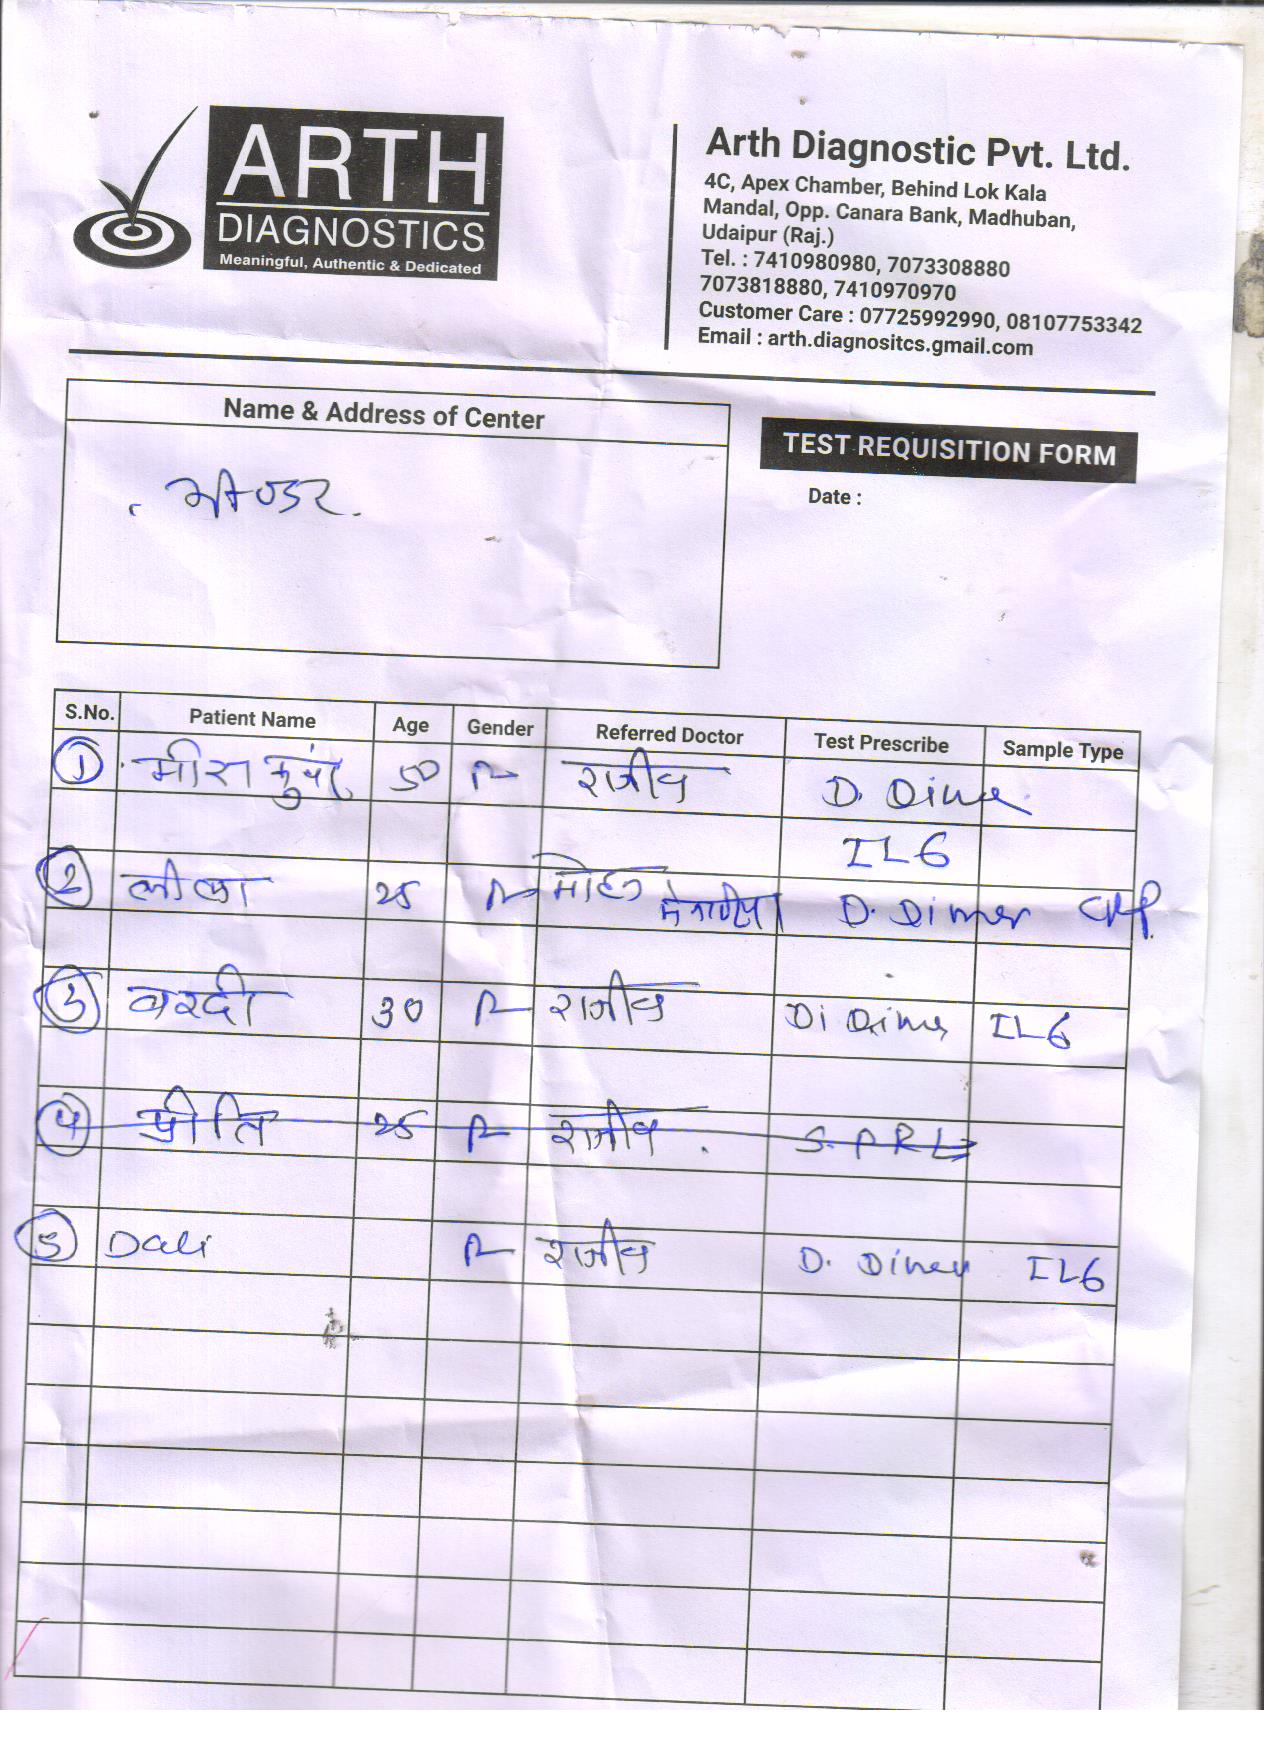 ARTH
DIAGNOSTICS
Meaningful, Authentic & Dedicated
Arth Diagnostic Pvt. Ltd.
4C, Apex Chamber, Behind Lok Kala
Mandal, Opp. Canara Bank, Madhuban,
Udaipur (Raj.)
Tel. : 7410980980, 7073308880
7073818880, 7410970970
Customer Care : 07725992990, 08107753342
Email : arth.diagnositcs.gmail.com
Name & Address of Center
TEST REQUISITION FORM
Date :
S.No. Patient Name Age Gender Referred Doctor Test Prescribe Sample Type
1 मीरा 50 F राजीव D. Dimer
IL6
2 लीला 25 F D. Dimer CRP
3 वरदी 30 F राजीव Di Dimer IL6
4 प्रीति 25 F राजीव S. PRL
5 Dali F राजीव D. Dimer IL6